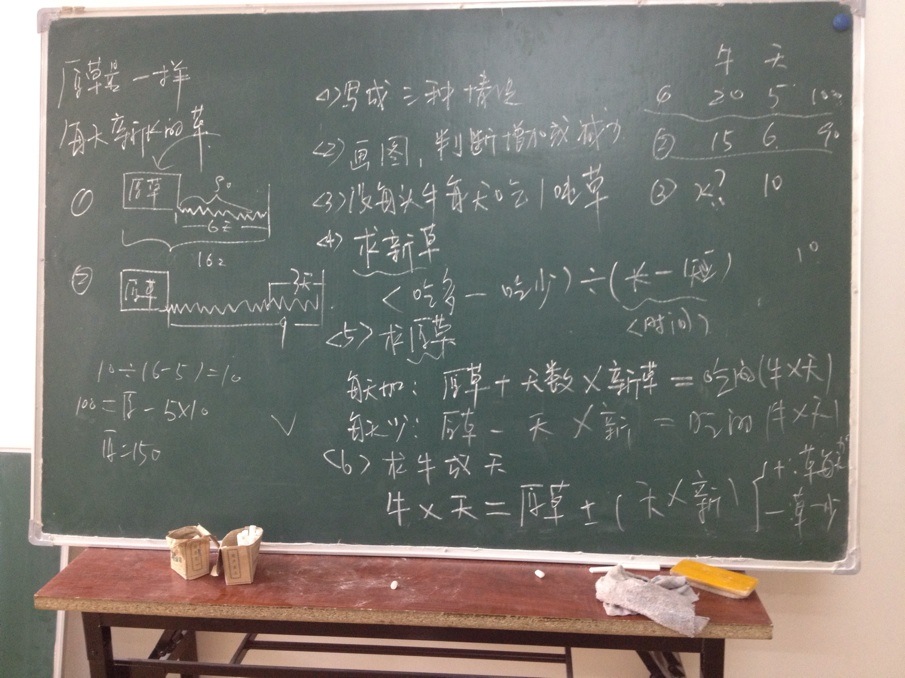 原草是一样
每天新长的草
① 原草
6天
162
② 原草 3天
9
10÷(6-5)=10
100=原-5×10
原=150
<1>写成三种情况
<2>画图,判断增加或减少
<3>设每头牛每天吃1吨草
<4>求新草
(吃多-吃少)÷(长-短)
<时间>
<5>求原草
每天加:原草+天数×新草=吃的(牛×天)
每天少:原草-天×新=吃的(牛×天)
<6>求牛或天
牛×天=原草±(天×新)
+:草每加
-草-少
牛 天
① 20 5 100
② 15 6 90
③ x? 10
10